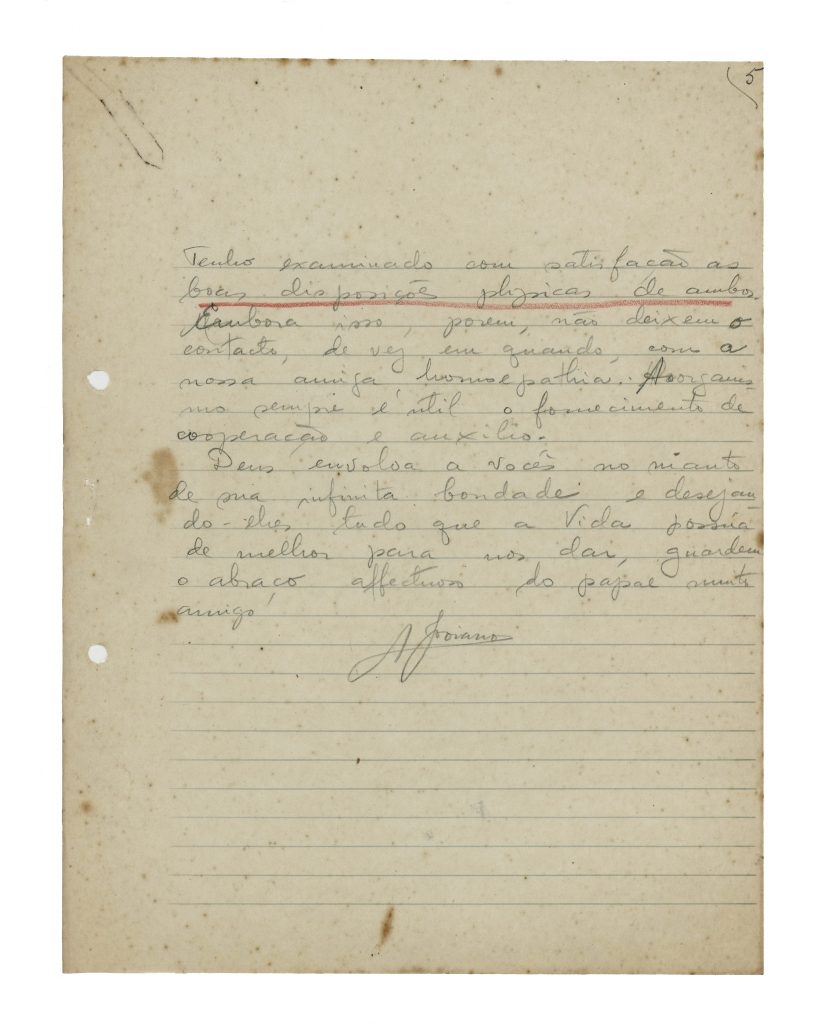 5
Tenho examinado com satisfacão as
boas disposições physicas de ambos.
Embora isso, porem, não deixem o
contacto, de vez em quando, com a
nossa amiga homoepathia. Ao organis-
mo sempre é util o fornecimento de
cooperacão e auxilio.
Deus envolva a vocês no manto
de sua infinita bondade e desejan-
do-lhes tudo que a Vida possúa
de melhor para nos dar, guardem
o abraço affectuoso do papae muito
amigo,
A Joviano